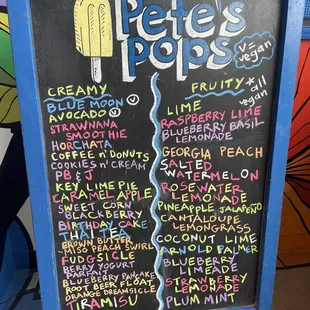 Pete's
Pops
V = vegan
CREAMY
BLUE MOON V
AVOCADO V
STRAWNANA
SMOOTHIE
HORCHATA
COFFEE n' DONUTS
COOKIES n' CREAM
PB & J
KEY LIME PIE
CARAMEL APPLE
SWEET CORN
BLACKBERRY
BIRTHDAY CAKE
THAI TEA
BROWN BUTTER
MISO PEACH SWIRL
FUDGSICLE
BERRY YOGURT
PARFAIT
BLUEBERRY PANCAKE
ROOT BEER FLOAT
ORANGE DREAMSICLE
TIRAMISU
FRUITY * all
vegan
LIME
RASPBERRY LIME
BLUEBERRY BASIL
LEMONADE
GEORGIA PEACH
SALTED
WATERMELON
ROSEWATER
LEMONADE
PINEAPPLE JALAPEÑO
CANTALOUPE
LEMONGRASS
COCONUT LIME
ARNOLD PALMER
BLUEBERRY
LIMEADE
STRAWBERRY
LEMONADE
PLUM MINT